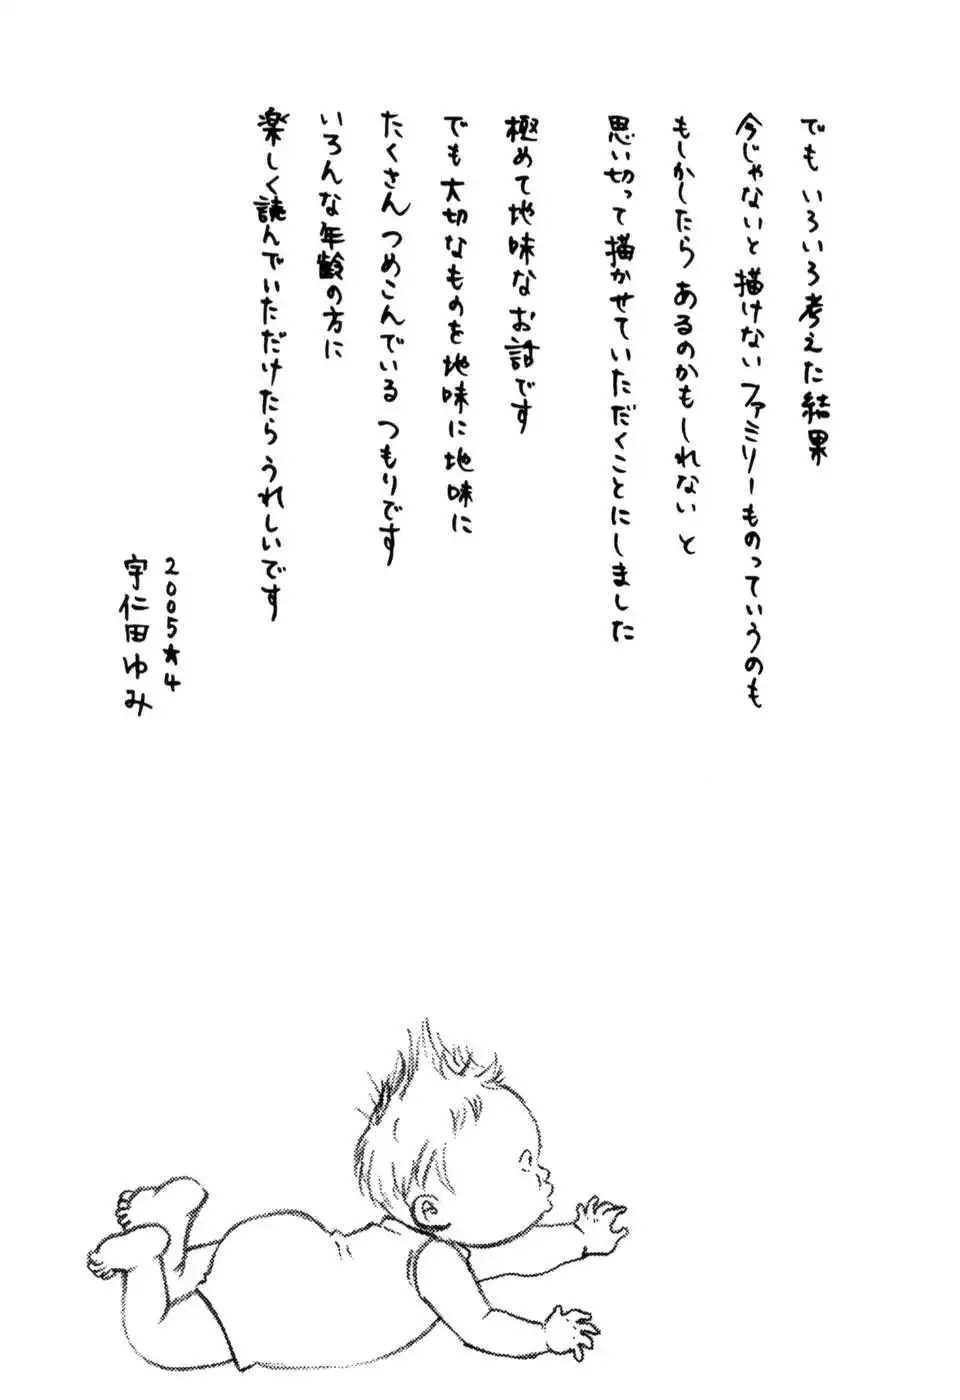 でも いろいろ考えた結果
今じゃないと 描けない ファミリーものっていうのも
もしかしたら あるのかもしれない と
思い切って 描かせていただくことにしました
極めて地味なお話です
でも 大切なものを 地味に地味に
たくさん つめこんでいる つもりです
いろんな年齢の方に
楽しく読んでいただけたら うれしいです
2005★4
宇仁田ゆみ